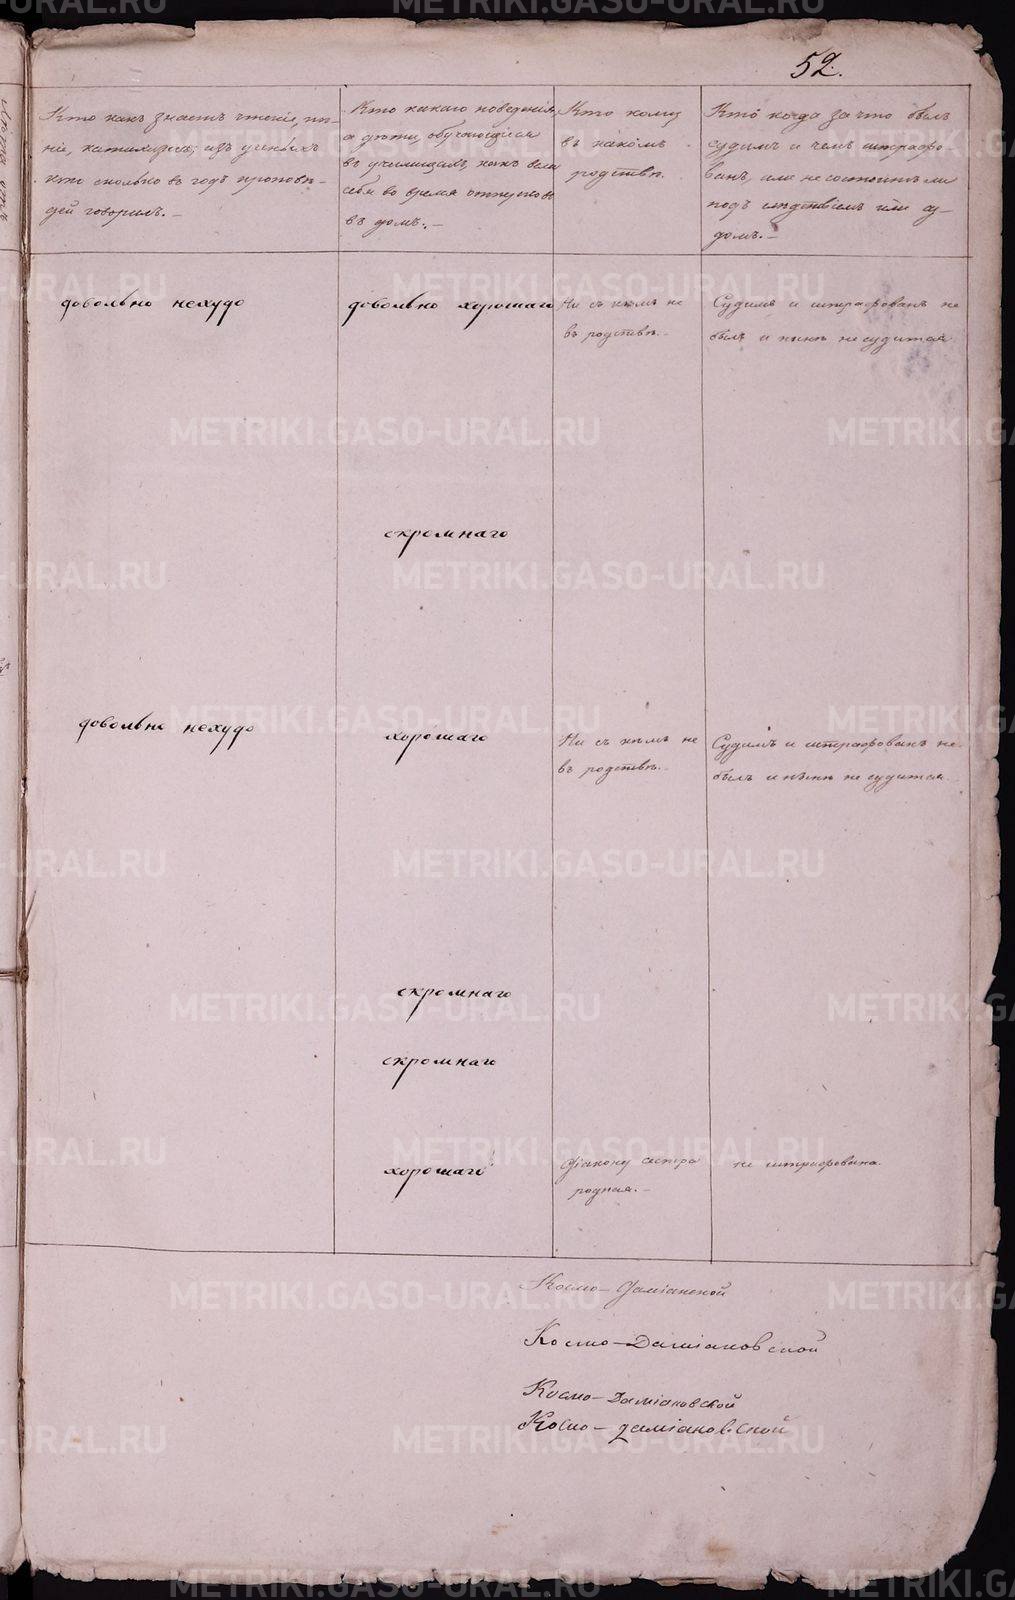 52.
Кто какъ знаетъ чтенiе, пѣ-
нiе, катихизисъ; изъ ученыхъ
кто сколько въ годъ проповѣ-
дей говорилъ.-
Кто какого поведенiя,
а дѣти, обучающiеся
въ училищахъ, какъ вели
себя во время отпусковъ
въ домъ.-
Кто кому
въ какомъ
родствѣ.
Кто когда за что былъ
судимъ и чемъ штрафо-
ванъ, или не состоитъ ли
подъ слѣдствiемъ или су-
домъ.-
довольно нехудо
довольно хорошаго
Ни съ кѣмъ не
въ родствѣ.-
Судимъ и штрафованъ не
былъ и нынѣ не судится
скромнаго
довольно нехудо
хорошаго
Ни съ кѣмъ не
въ родствѣ.-
Судимъ и штрафованъ не
былъ и нынѣ не судится
скромнаго
скромнаго
хорошаго
Дiакону сестра
родная.-
не штрафована.
Космо-Дамiанской
Космо-Дамiановской
Космо-Дамiановской
Космо-дамiановской
METRIKI.GASO-URAL.RU